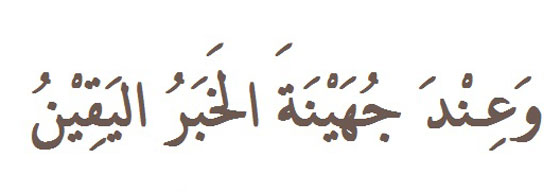 وَعِنْدَ جُهَيْنَةَ الخَبَرُ اليَقِيْنُ